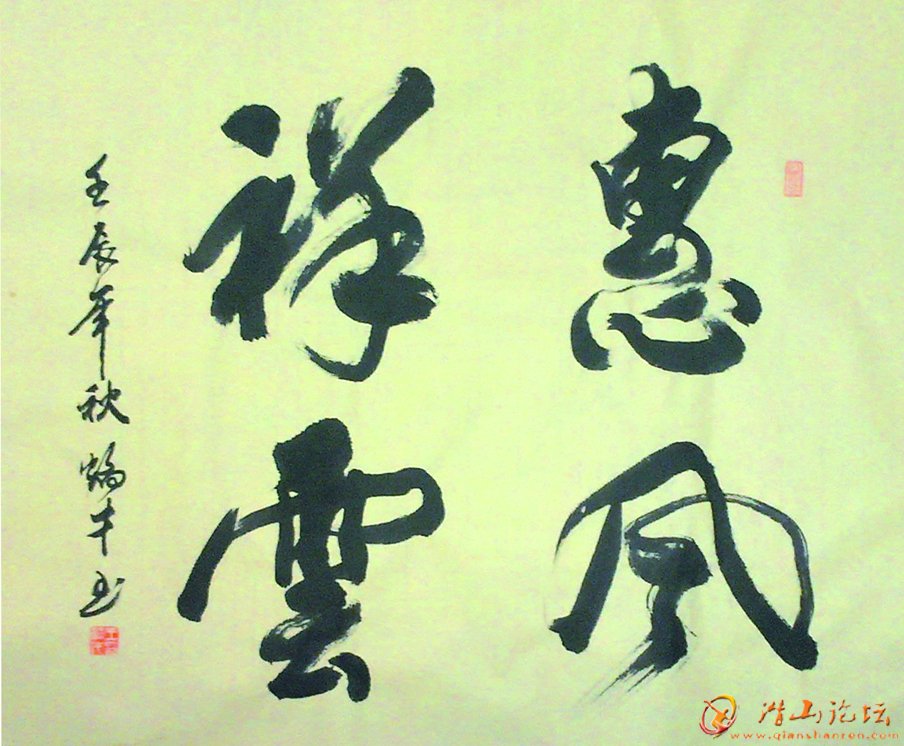 惠風
祥雲
壬辰年秋蝸牛書
潜山论坛
www.qianshanren.com